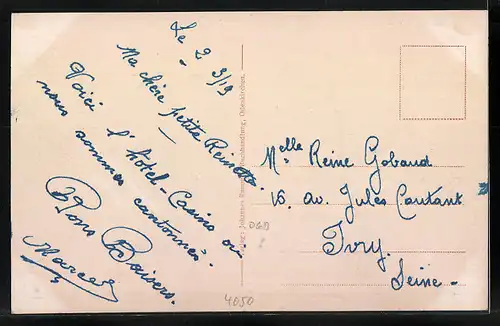 Le 2 3/19
Ma chère petite Reinette.
Voici l'hôtel-Casino où
nous sommes cantonnés.
Bons Baisers.
Marcel
Melle Reine Gobaud
16, av. Jules Coutant
Ivry.
Seine.
4050